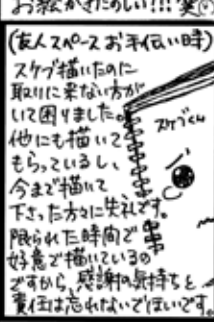 お絵かきたのしい!!! 笑
(友人スペースお手伝い時)
スケブ描いたのに
取りに来ない方が
いて困りました。
他にも描いて
もらっているし、
今まで描いて
下さった方々に失礼です。
限られた時間で
好意で描いているの
ですから、感謝の気持ちと
責任は忘れないでほしいです。
スケブくん